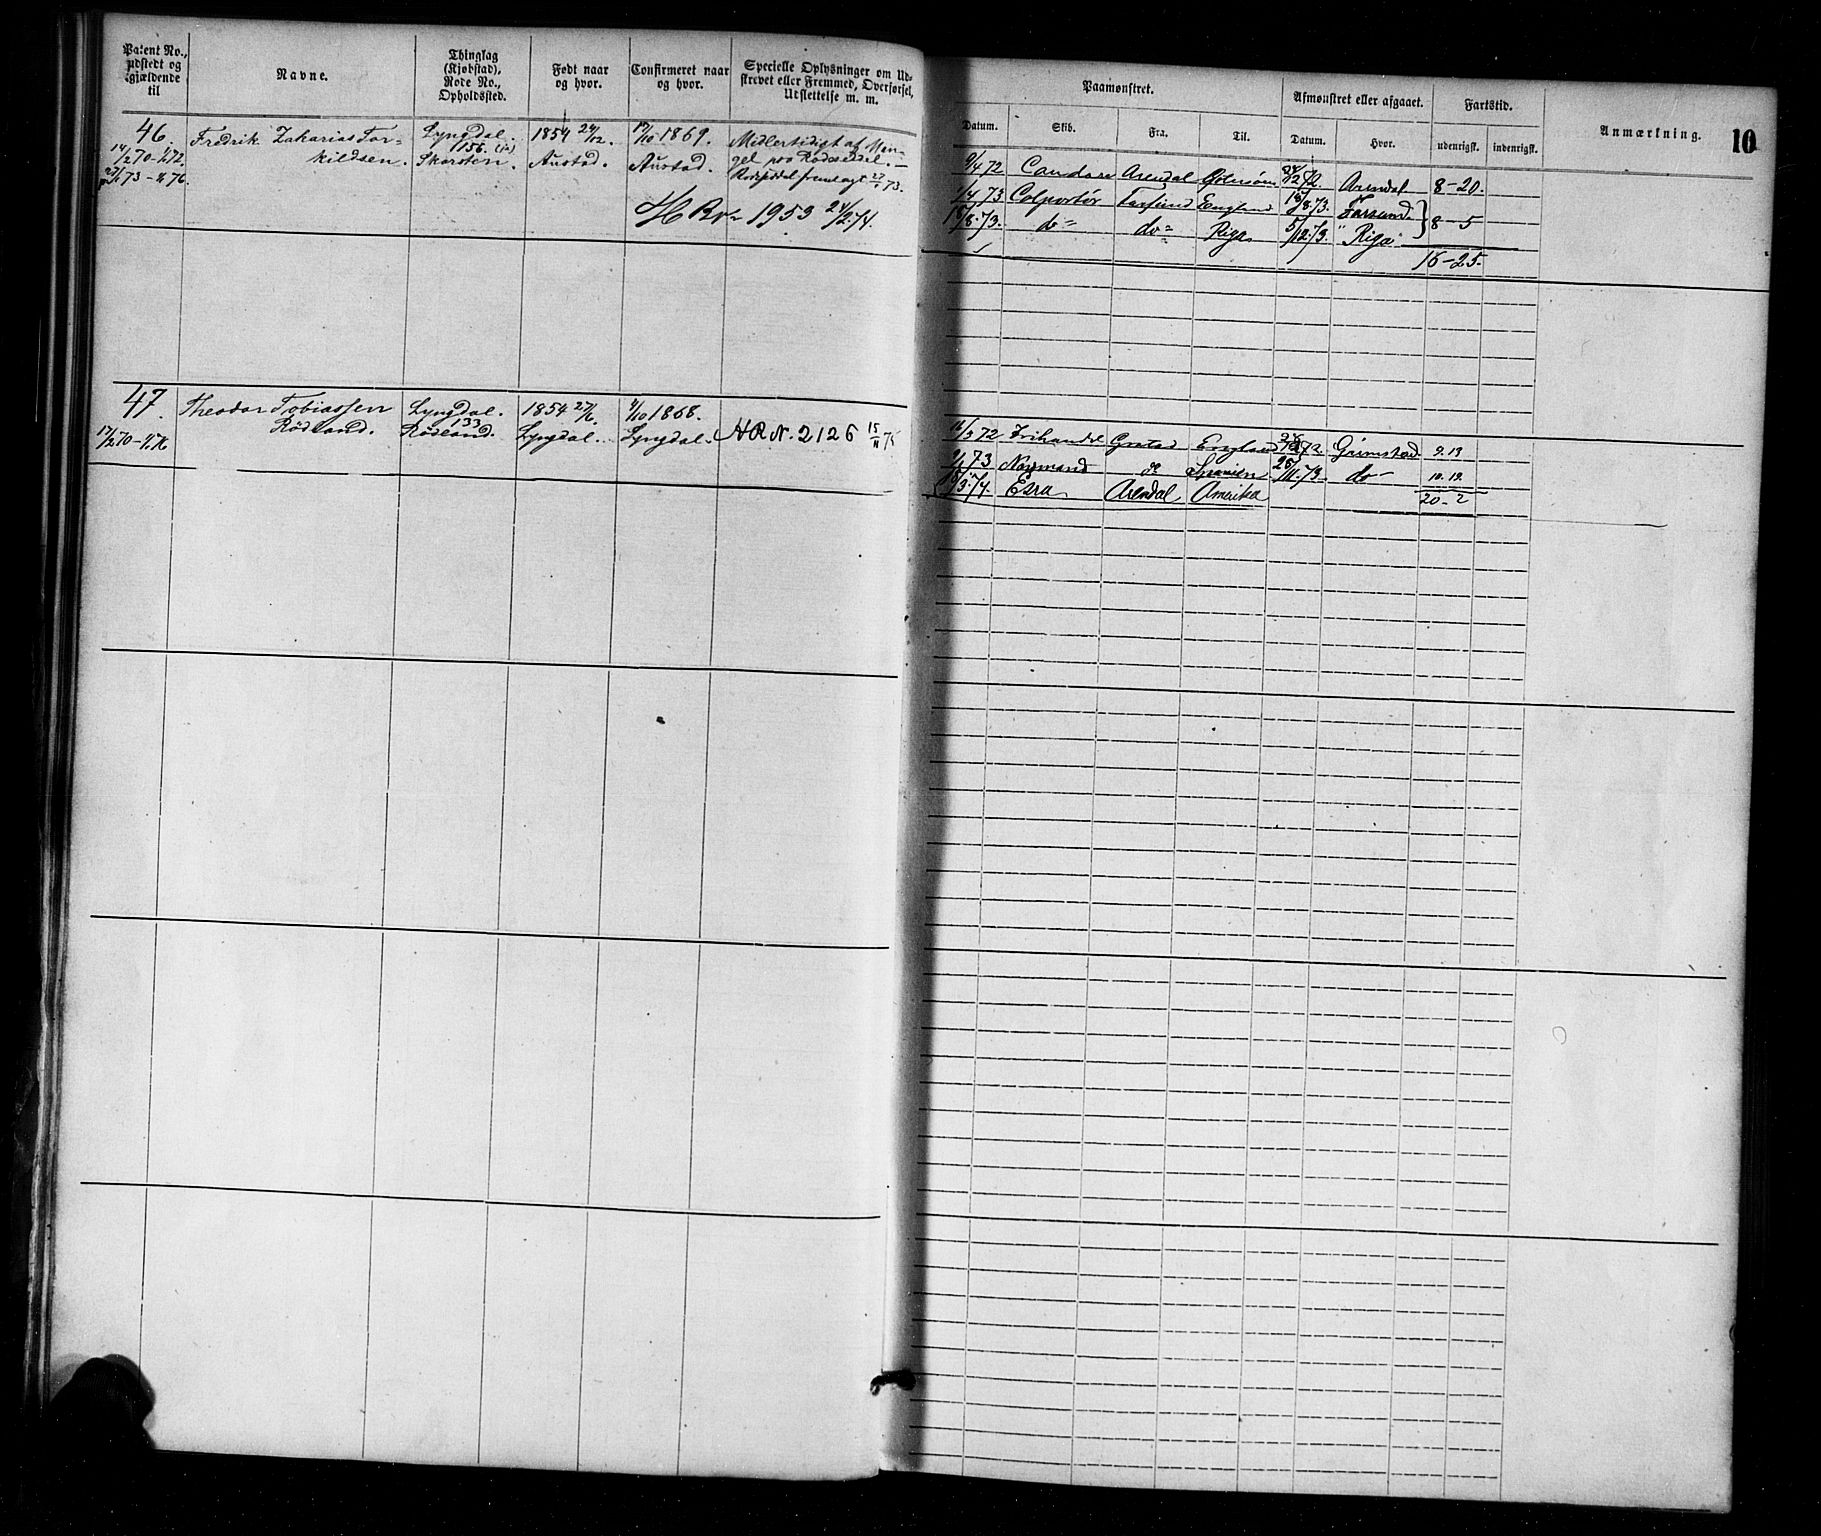 Patent No.,
udstedt og
gjældende
til
Navne.
Thinglag
(Kjøbstad),
Rode No.,
Opholdssted.
Født naar
og hvor.
Confirmeret naar
og hvor.
Specielle Oplysninger om Ud-
skrevet eller Fremmed, Overførsel,
Udslettelse m. m.
46.
14/2 70 - 1/1 72.
27/1 73 - 1/1 76.
Fredrik Zakarias Tor-
kildsen.
Lyngdal.
156.
Skarsten.
1854 24/12.
Austad.
17/10 1869.
Austad.
Midlertidigt af Man-
gel paa Rodeseddel. —
Rodeseddel fremlagt 27/1 73.
H R No 1953 24/2 74.
47.
17/2 70 - 1/1 76
Theodor Tobiassen
Rødland.
Lyngdal.
133
Rødland.
1854 27/6.
Lyngdal.
4/10 1868.
Lyngdal.
H R N. 2126 15/11 75
Paamønstret.
Afmønstret eller afgaaet.
Fartstid.
Anmærkning.
10
Datum.
Skib.
Fra.
Til.
Datum.
Hvor.
udenrigsk.
indenrigsk.
9/4 72 Candace Arendal 24/12 72. Arendal 8-20.
1/4 73 Colportør Farsund England 18/8 73. Farsund
18/8 73. do do Riga 5/12 73. "Riga" 8-5
16-25.
16/3 72 Frihandel Grstad England 72 Grimstad 9.13
2/1 73 Normand do Spanien 20/11 73. do 10.19.
3.74. Ezra Arendal Amerika 20-2